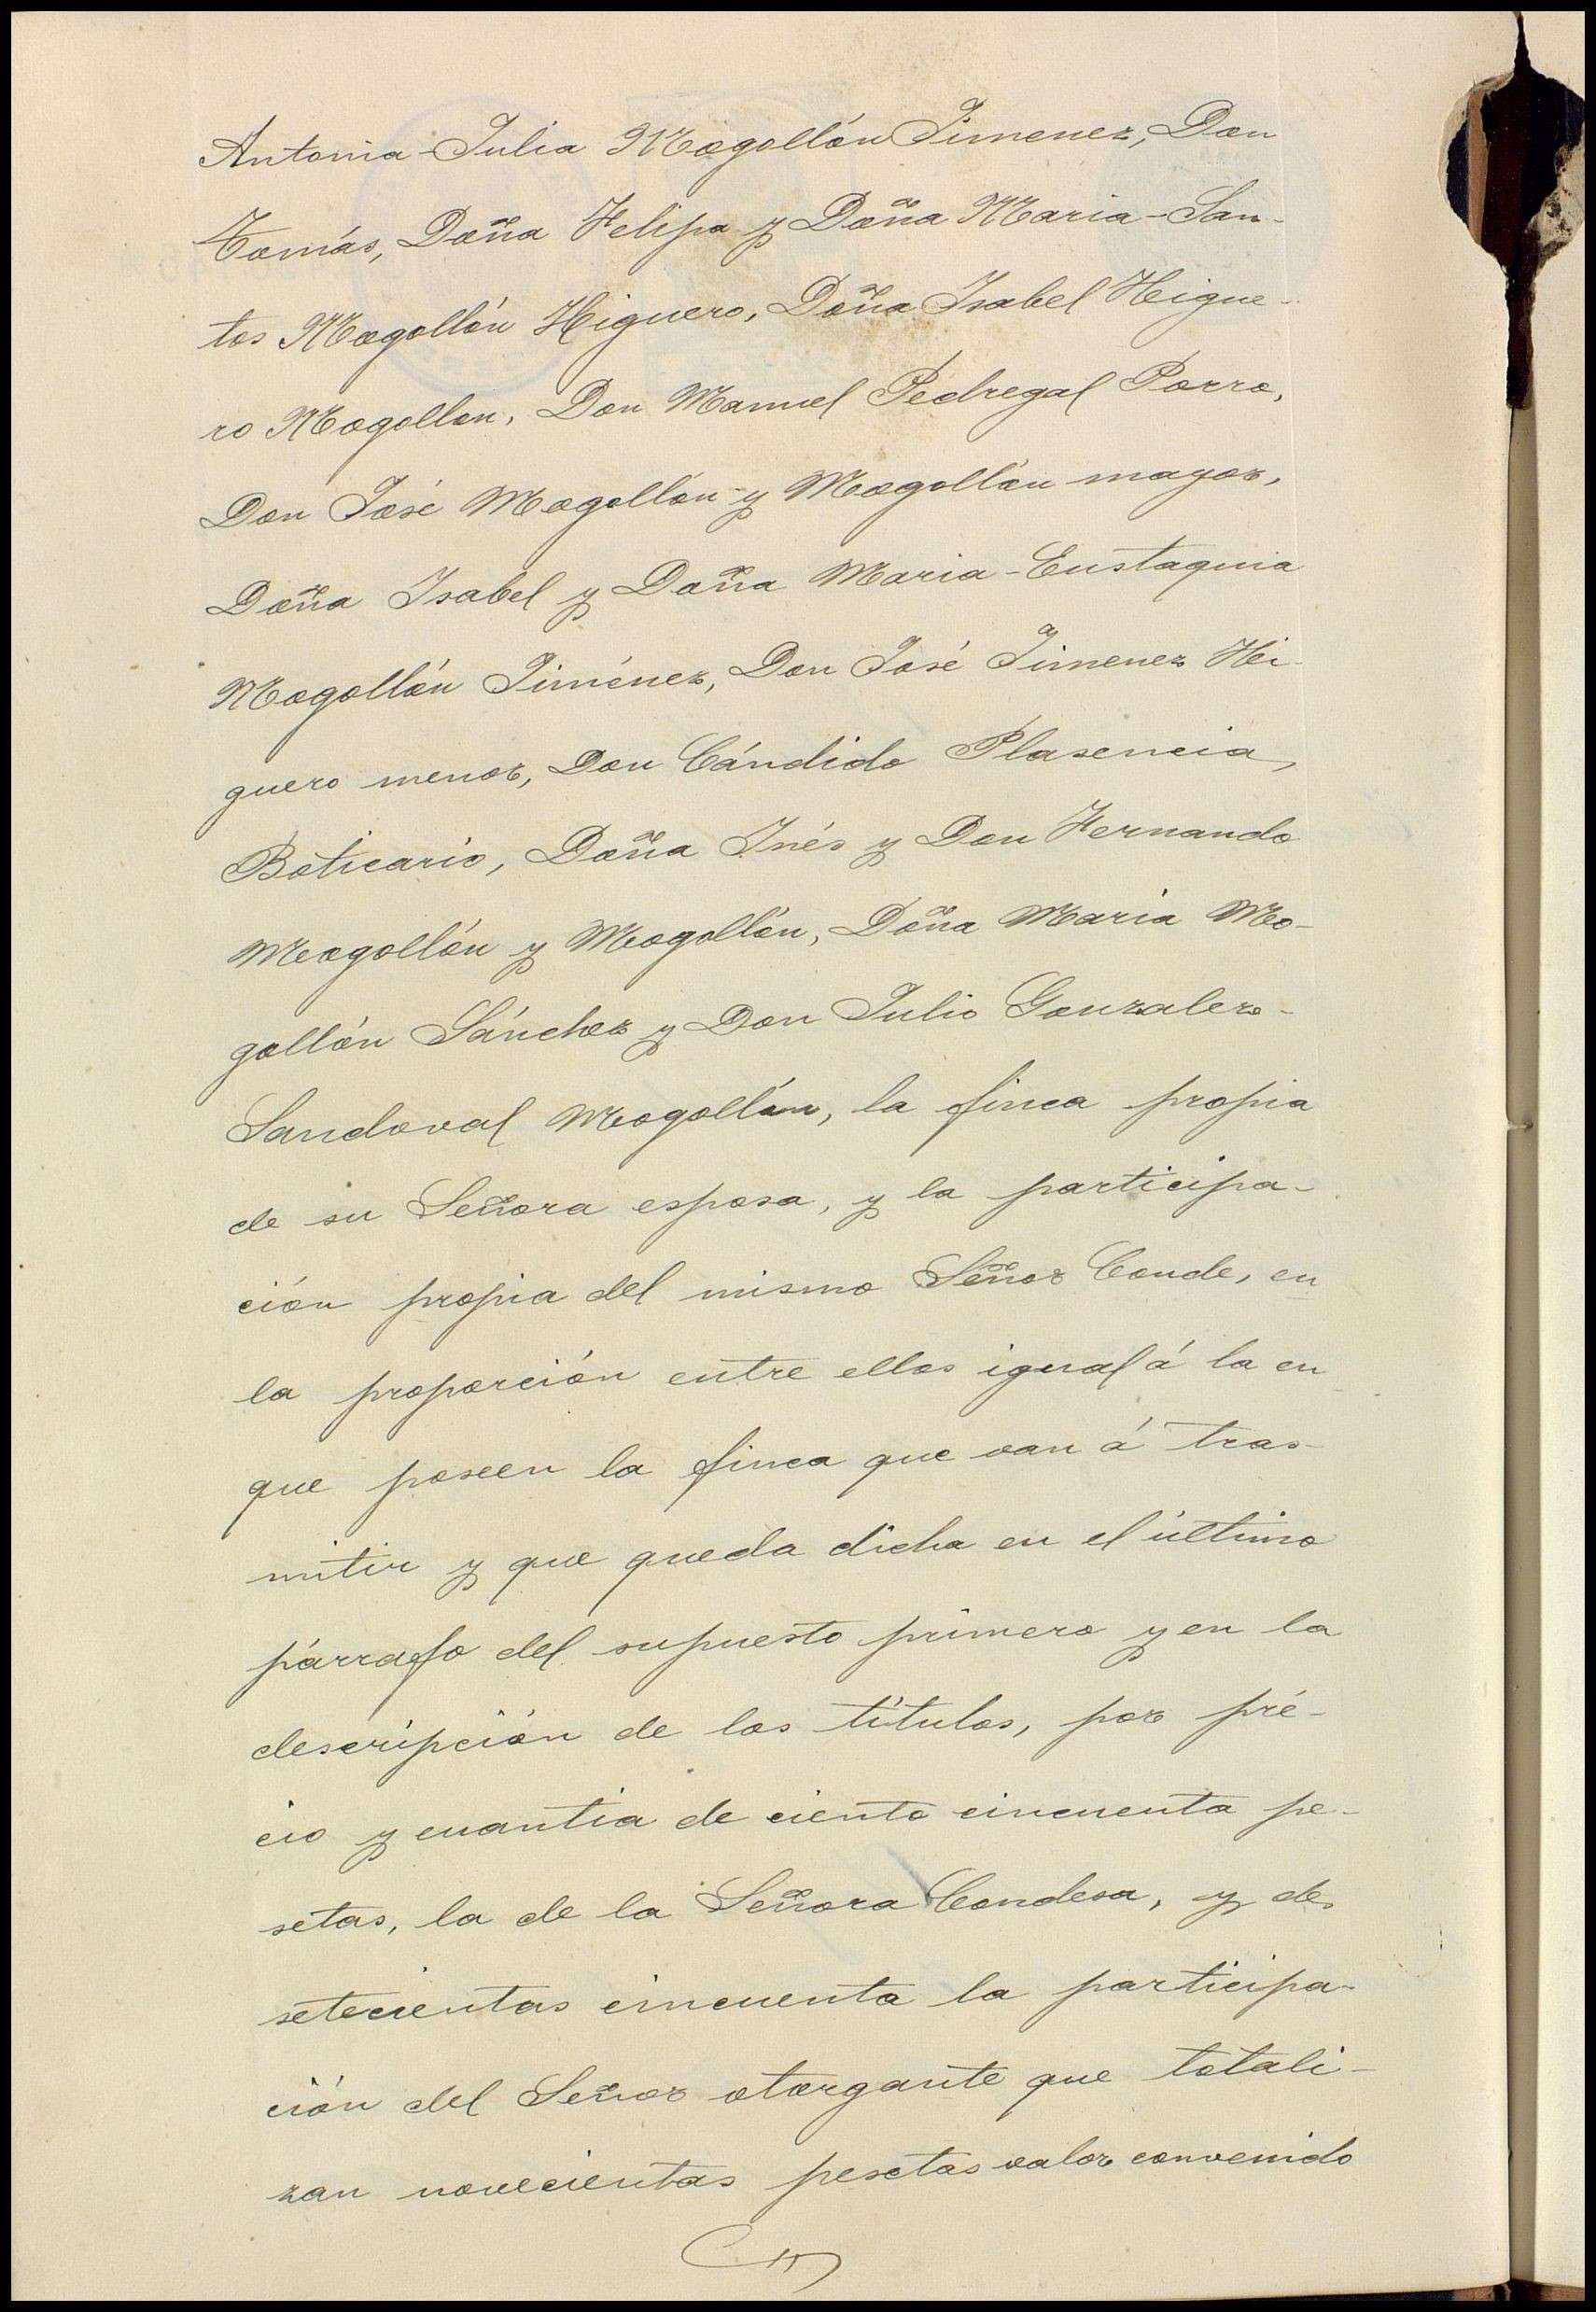 Antonia-Julia Mogollón Jimenez, Don
Tomás, Doña Felipa y Doña Maria-San-
tos Mogollón Higuero, Doña Isabel Higue-
ro Mogollon, Don Manuel Pedregal Porro,
Don José Mogollón y Mogollón mayor,
Doña Isabel y Doña Maria-Eustaquia
Mogollón Jiménez, Don José Jimenez Hi-
guero menor, Don Cándido Plasencia
Boticario, Doña Inés y Don Fernando
Mogollón y Mogollón, Doña Maria Mo-
gollón Sánchez y Don Julio Gonzalez-
Sandoval Mogollón, la finca propia
de su Señora esposa, y la participa-
ción propia del mismo Señor Conde, en
la proporción entre ellos igual á la en
que poseen la finca que van á tras-
mitir y que queda dicha en el último
párrafo del supuesto primero y en la
descripción de los títulos, por pré-
cio y cuantia de ciento cincuenta pe-
setas, la de la Señora Condesa, y de
setecientas cincuenta la participa-
ción del Señor otorgante que totali-
zan novecientas pesetas valor convenido